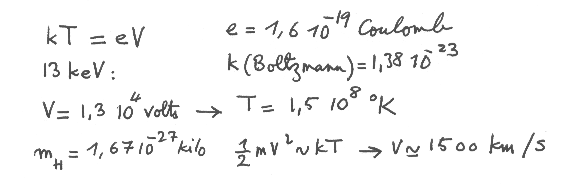 kT = eV e = 1,6 10⁻¹⁹ Coulomb
13 keV: k (Boltzmann) = 1,38 10⁻²³
V = 1,3 10⁴ volts → T = 1,5 10⁸ °K
m_H = 1,67 10⁻²⁷ kilo ½ mV² ~ kT → V ≃ 1500 km/s